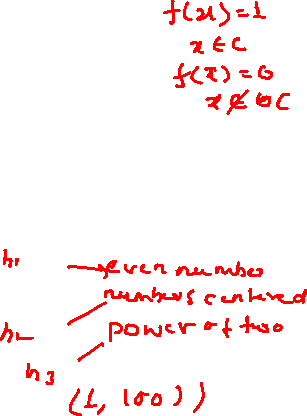 f(x)=1
x ∈ C
f(x)=0
x ∉ C
h1 → even number
numbers centered
h2 power of two
h3
(1, 100))